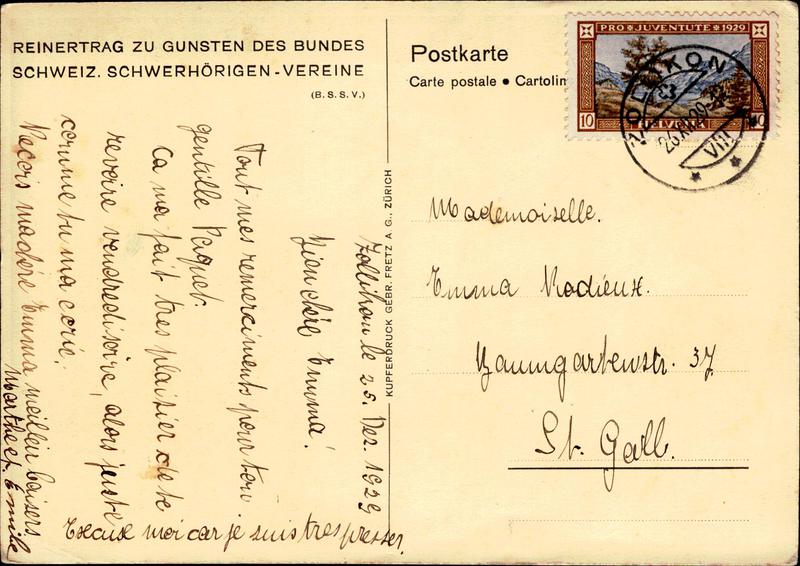 REINERTRAG ZU GUNSTEN DES BUNDES
SCHWEIZ. SCHWERHÖRIGEN-VEREINE
(B.S.S.V.)
Postkarte
Carte postale • Cartolin
PRO JUVENTUTE 1929
10 HELVETIA
26.XII.29
VIII
KUPFERDRUCK GEBR. FRETZ A.G., ZÜRICH
Zollikon le 25. Dez. 1929
bien chère Emma!
Tout mes remerciments pour ton
gentille
Ca ma fait tres plaisier de te
revoire vendredi soire, alors juste
comme tu ma ecrie.
Recois ma chère Emma meillieu baisers
Marthe et Emile
Excuse moi car je suis tres presser.
Mademoiselle.
Emma Rodieux.
Baumgartenstr. 37
St. Gall.